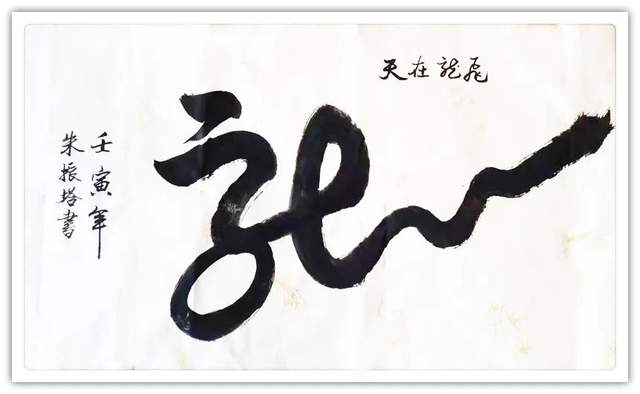 飛龍在天
龍
壬寅年
朱振塔書